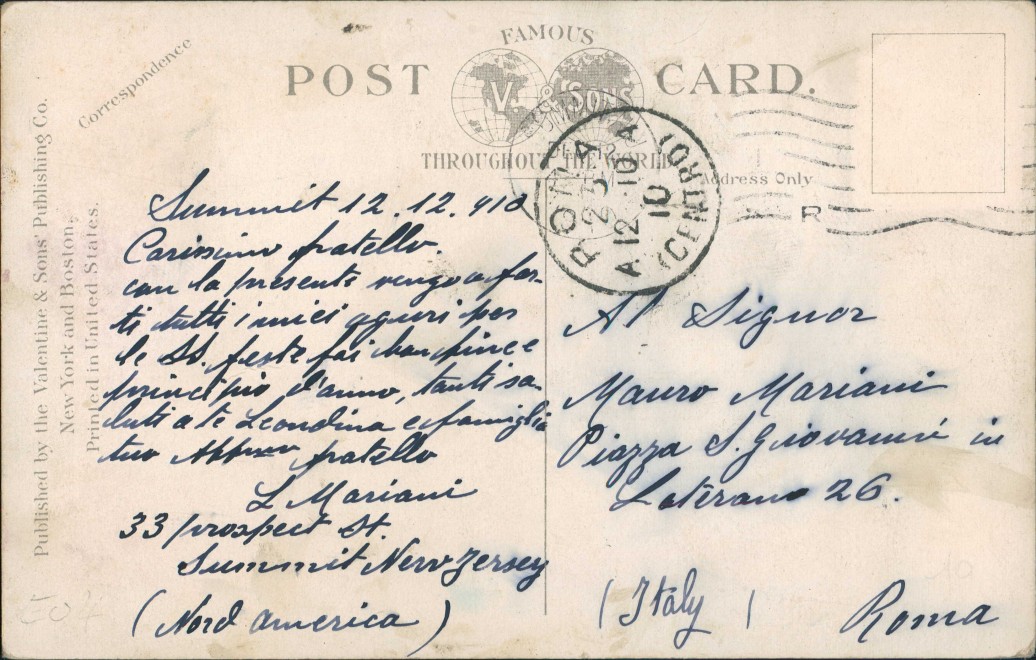 FAMOUS
POST CARD.
V. & SONS
THROUGHOUT THE WORLD
Correspondence
Address Only
Published by the Valentine & Sons' Publishing Co.
New York and Boston,
Printed in United States.
ROMA
(CENTRO)
23
12 - 10
10
R
Summit 12.12.910
Carissimo fratello.
con la presente vengo a far-
ti tutti i miei aguri per
le SS. feste fai buon fine e
principio d'anno, tanti sa-
luti a te Leondina e famiglia
tuo fratello
L Mariani
33 prospect St.
Summit New Jersey
(Nord America)
Al Signor
Mauro Mariani
Piazza S. Giovanni in
Laterano 26.
(Italy) Roma